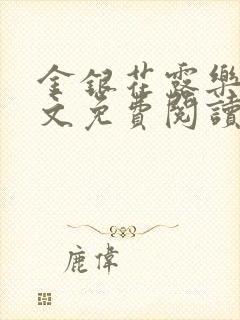 金銀花露樂
文免費閱讀
鹿偉